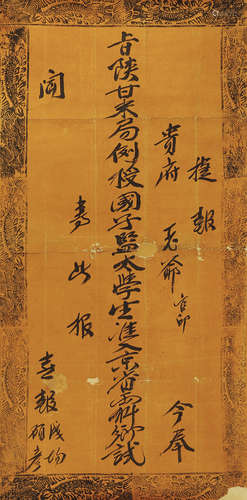 捷報
貴府老爺官印今奉
旨陝甘米局例授國子監太學生准入京省科鄉試
此報
聞
喜報